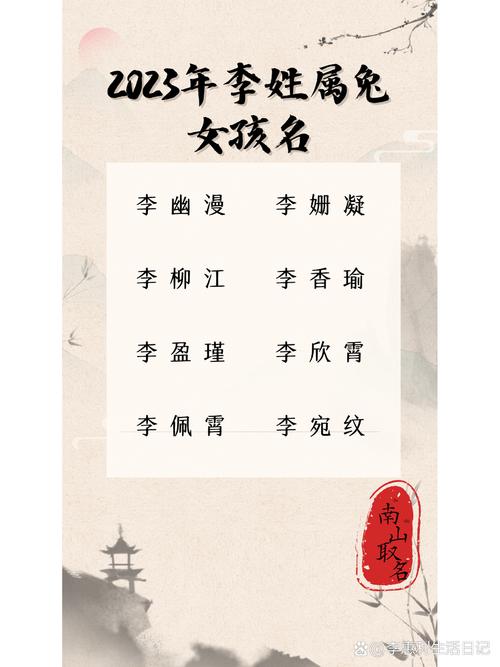 2023年李姓属兔
女孩名
李幽漫 李姗凝
李柳江 李香瑜
李盈瑾 李欣霄
李佩霄 李宛纹
南山取名
李惠利生活日记